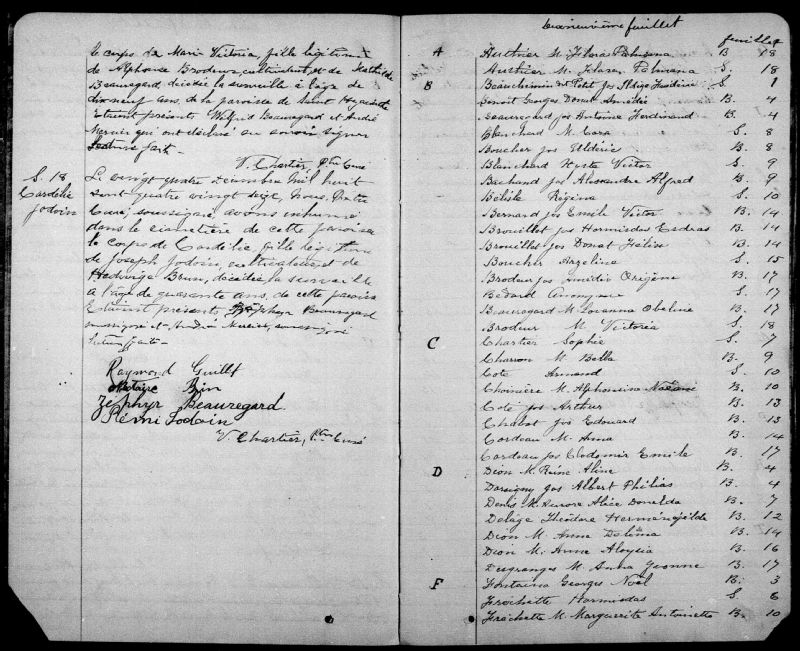 le corps de Marie Victoria, fille légitime
de Alphonse Brodeur, cultivateur, et de Mathilde
Beauregard, décédée la surveille à l'âge de
dix neuf ans, de la paroisse de Saint Hyacinthe
Etaient présents Wilfrid Beauregard et André
qui ont déclaré ne savoir signer
Lecture faite.
V. Chartier, Ptre Curé
S. 18
Cordélie
Jodoin
Le vingt quatre décembre mil huit
cent quatre vingt sept, Nous, Prêtre
Curé, soussigné, avons inhumé
dans le cimetière de cette paroisse
le corps de Cordélie, fille légitime
de Joseph Jodoin, cultivateur, et de
Hedwige Brun, décédée la surveille
à l'âge de quarante ans, de cette paroisse
Etaient présents, Zéphyr Beauregard
soussigné et
Lecture faite
Raymond Guillt
Zephyr Beauregard
Rémi Jodoin
V. Chartier, Ptre Curé
Dixneuvième feuillet
feuillet
A Authier M. Flora Palmena B. 18
Authier M. Flora Palmena S. 18
B Beauchemin dit Petit jos S. 1
Benoit Georges Donat Amédée B. 4
Beauregard jos Antoine Ferdinand B. 4
Blanchard M. Cora S. 8
Boucher jos Uldéric B. 8
Blanchard Victor S. 9
Bachand jos Alexandre Alfred B. 9
Bélisle Régina S. 10
Bernard jos Emile Victor B. 14
Brouillet jos Hormisdas Esdras B. 14
Brouillet jos Donat Félix B. 14
Boucher Azeline S. 15
Brodeur jos Amédée Origène B. 17
Bédard Anonyme S. 17
Beauregard M. Lovanna Obeline B. 17
Brodeur M. Victoria S. 18
C Chartier Sophie S. 7
Charron M. Bella B. 9
Coté Armand S. 10
Choinière M. Alphonsina Noëmie B. 10
Coté jos Arthur B. 13
Chabot jos Edouard B. 13
Cordeau M. Anna B. 14
Cordeau jos Clodomir Emile B. 17
D Dion M. Reine Aline B. 4
Darsigny jos Albert Philias B. 4
Denis M. Aurore Alice Donalda B. 7
Delâge Théodore Herménégilde B. 12
Dion M. Anne Delima B. 14
Dion M. Anne Aloysia B. 16
Desgranges M. Anna Yvonne B. 17
F Fontaine Georges Noël B. 3
Fréchette Hormisdas S. 6
Fréchette M. Marguerite Antoinette B. 10